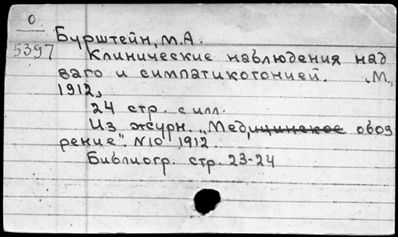 0
5397
Бурштейн, М.А.
Клинические наблюдения над
ваго и симпатикотонией. М.,
1912,
24 стр. с илл.
Из журн. „Медицинское обоз
рение". N10 1912.
Библиогр. стр. 23-24